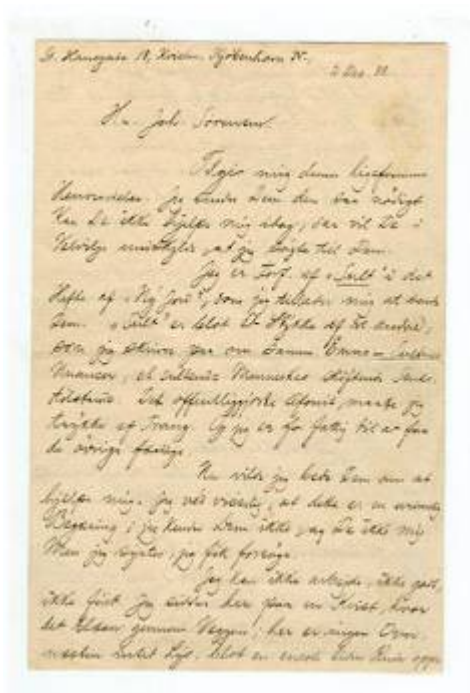 St. Hansgade 18, Kvisten. Kjøbenhavn N.
2 Dec. 88.
Hr. Joh. Sørensen.
Tilgiv mig denne ligefremme
Henvendelse. Jeg sender Dem den saa nødigt
Kan De ikke hjælpe mig idag, saa vil De i
Velvilje undskylde, at jeg søgte til Dem.
Jeg er Forf. af "Sult" i det
Hefte af "Ny Jord", som jeg tillader mig at sende
Dem. "Sult" er blot et Stykke af det andet,
som jeg skriver paa om samme Emne – Sultens
Nuancer, et sultende Menneskes
Det offentliggjorte Afsnit, maatte jeg
trykke af Trang. Og jeg er for fattig til at faa
de øvrige færdige.
Nu vilde jeg bede Dem om at
hjælpe mig. Jeg véd, at dette er en urimelig
Begæring; jeg kender Dem ikke, og De ikke mig
Men jeg
Jeg kan ikke arbejde, ikke godt,
ikke frit. Jeg sidder her paa en Kvist, hvor
det blæser gennem Væggen; her er ingen Ovn,
næsten intet Lys, blot en eneste liden Rude oppe